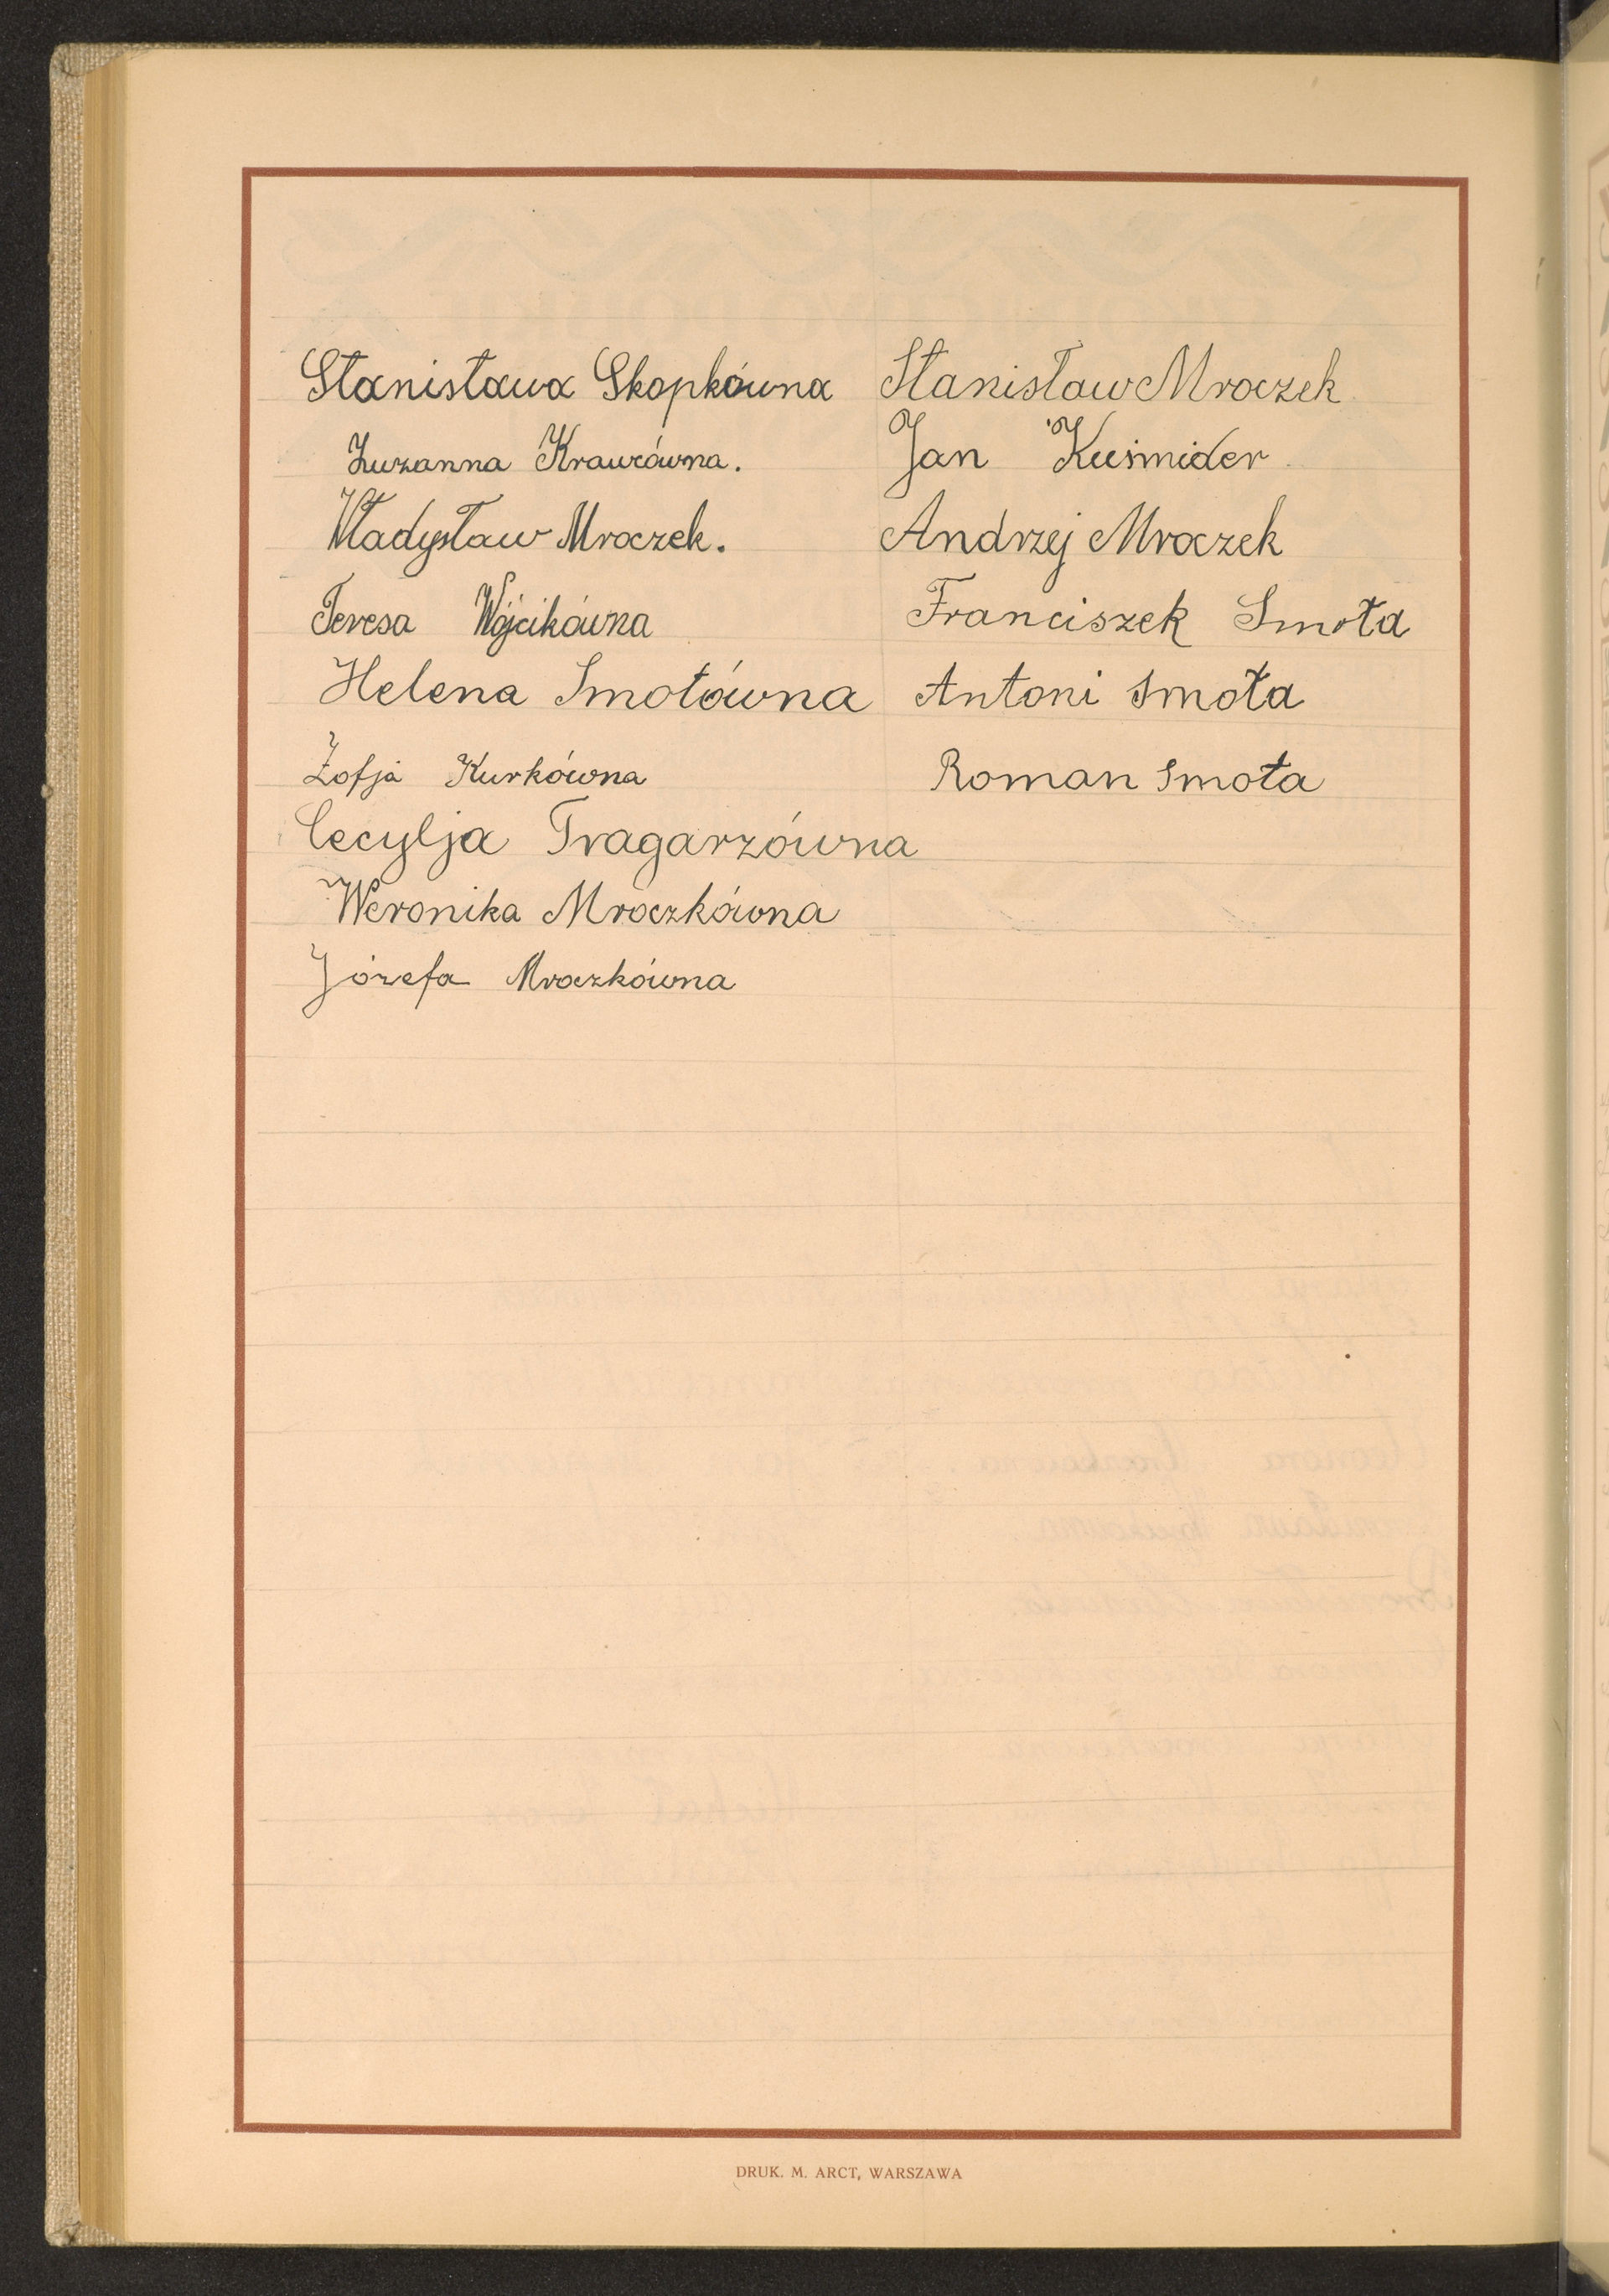 Stanisława Skopkówna
Zuzanna Krawcówna.
Władysław Mroczek.
Teresa Wójcikówna
Helena Smołówna
Zofja Kurkówna
Cecylja Tragarzówna
Weronika Mroczkówna
Józefa Mroczkówna
Stanisław Mroczek
Jan Kuśmider
Andrzej Mroczek
Franciszek Smoła
Antoni Smoła
Roman Smoła
DRUK. M. ARCT, WARSZAWA